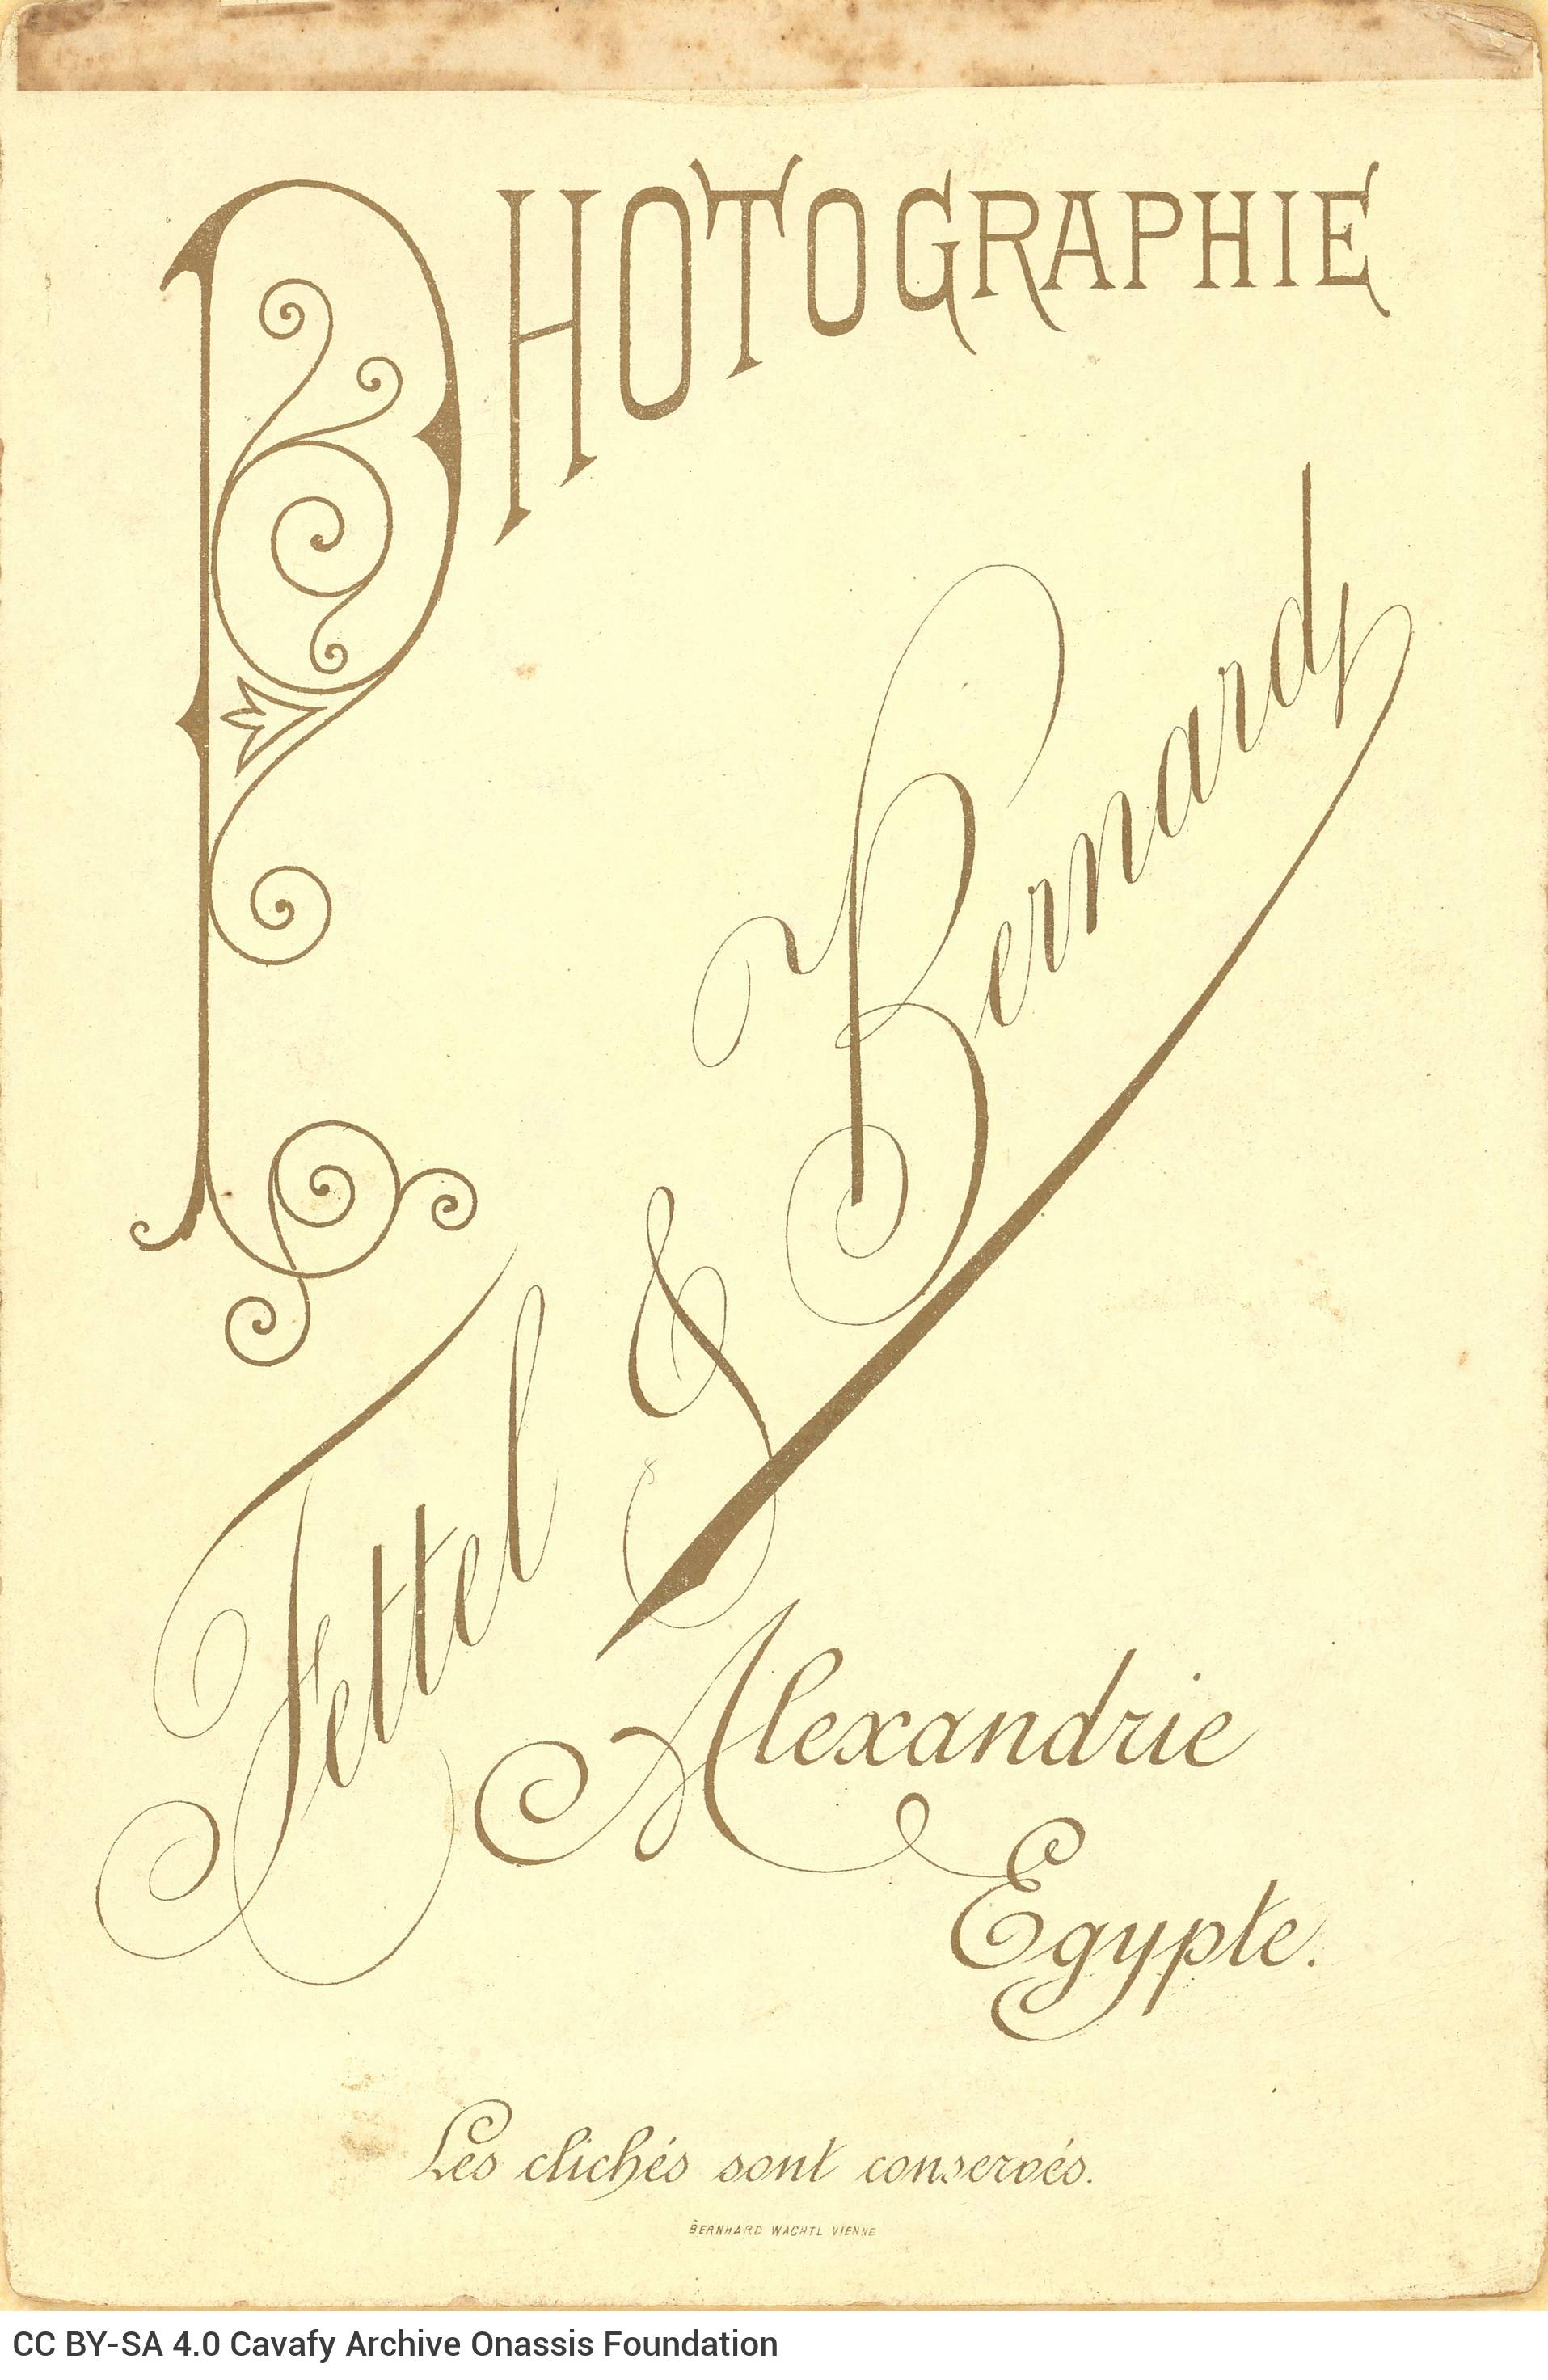 PHOTOGRAPHIE
Fettel & Bernard,
Alexandrie
Egypte.
Les clichés sont conservés.
BERNHARD WACHTL VIENNE
CC BY-SA 4.0 Cavafy Archive Onassis Foundation